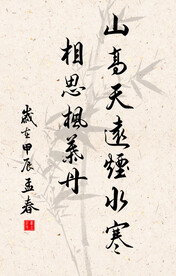 山高天遠煙水寒
相思楓葉丹
歲在甲辰孟春